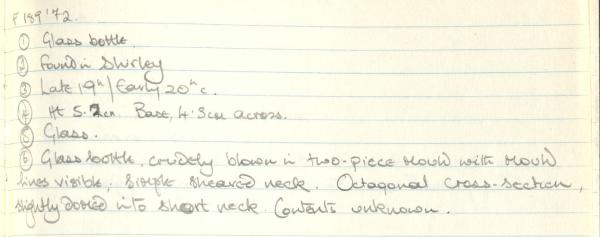 F189'72.
① Glass bottle.
② Found in Shirley
③ Late 19th/Early 20th c.
④ Ht 5.2cm. Base, 4.3cm across.
⑤ Glass.
⑥ Glass bottle, crudely blown in two-piece mould with mould
lines visible, simple sheared neck. Octagonal cross-section,
slightly domed into short neck. Contents unknown.